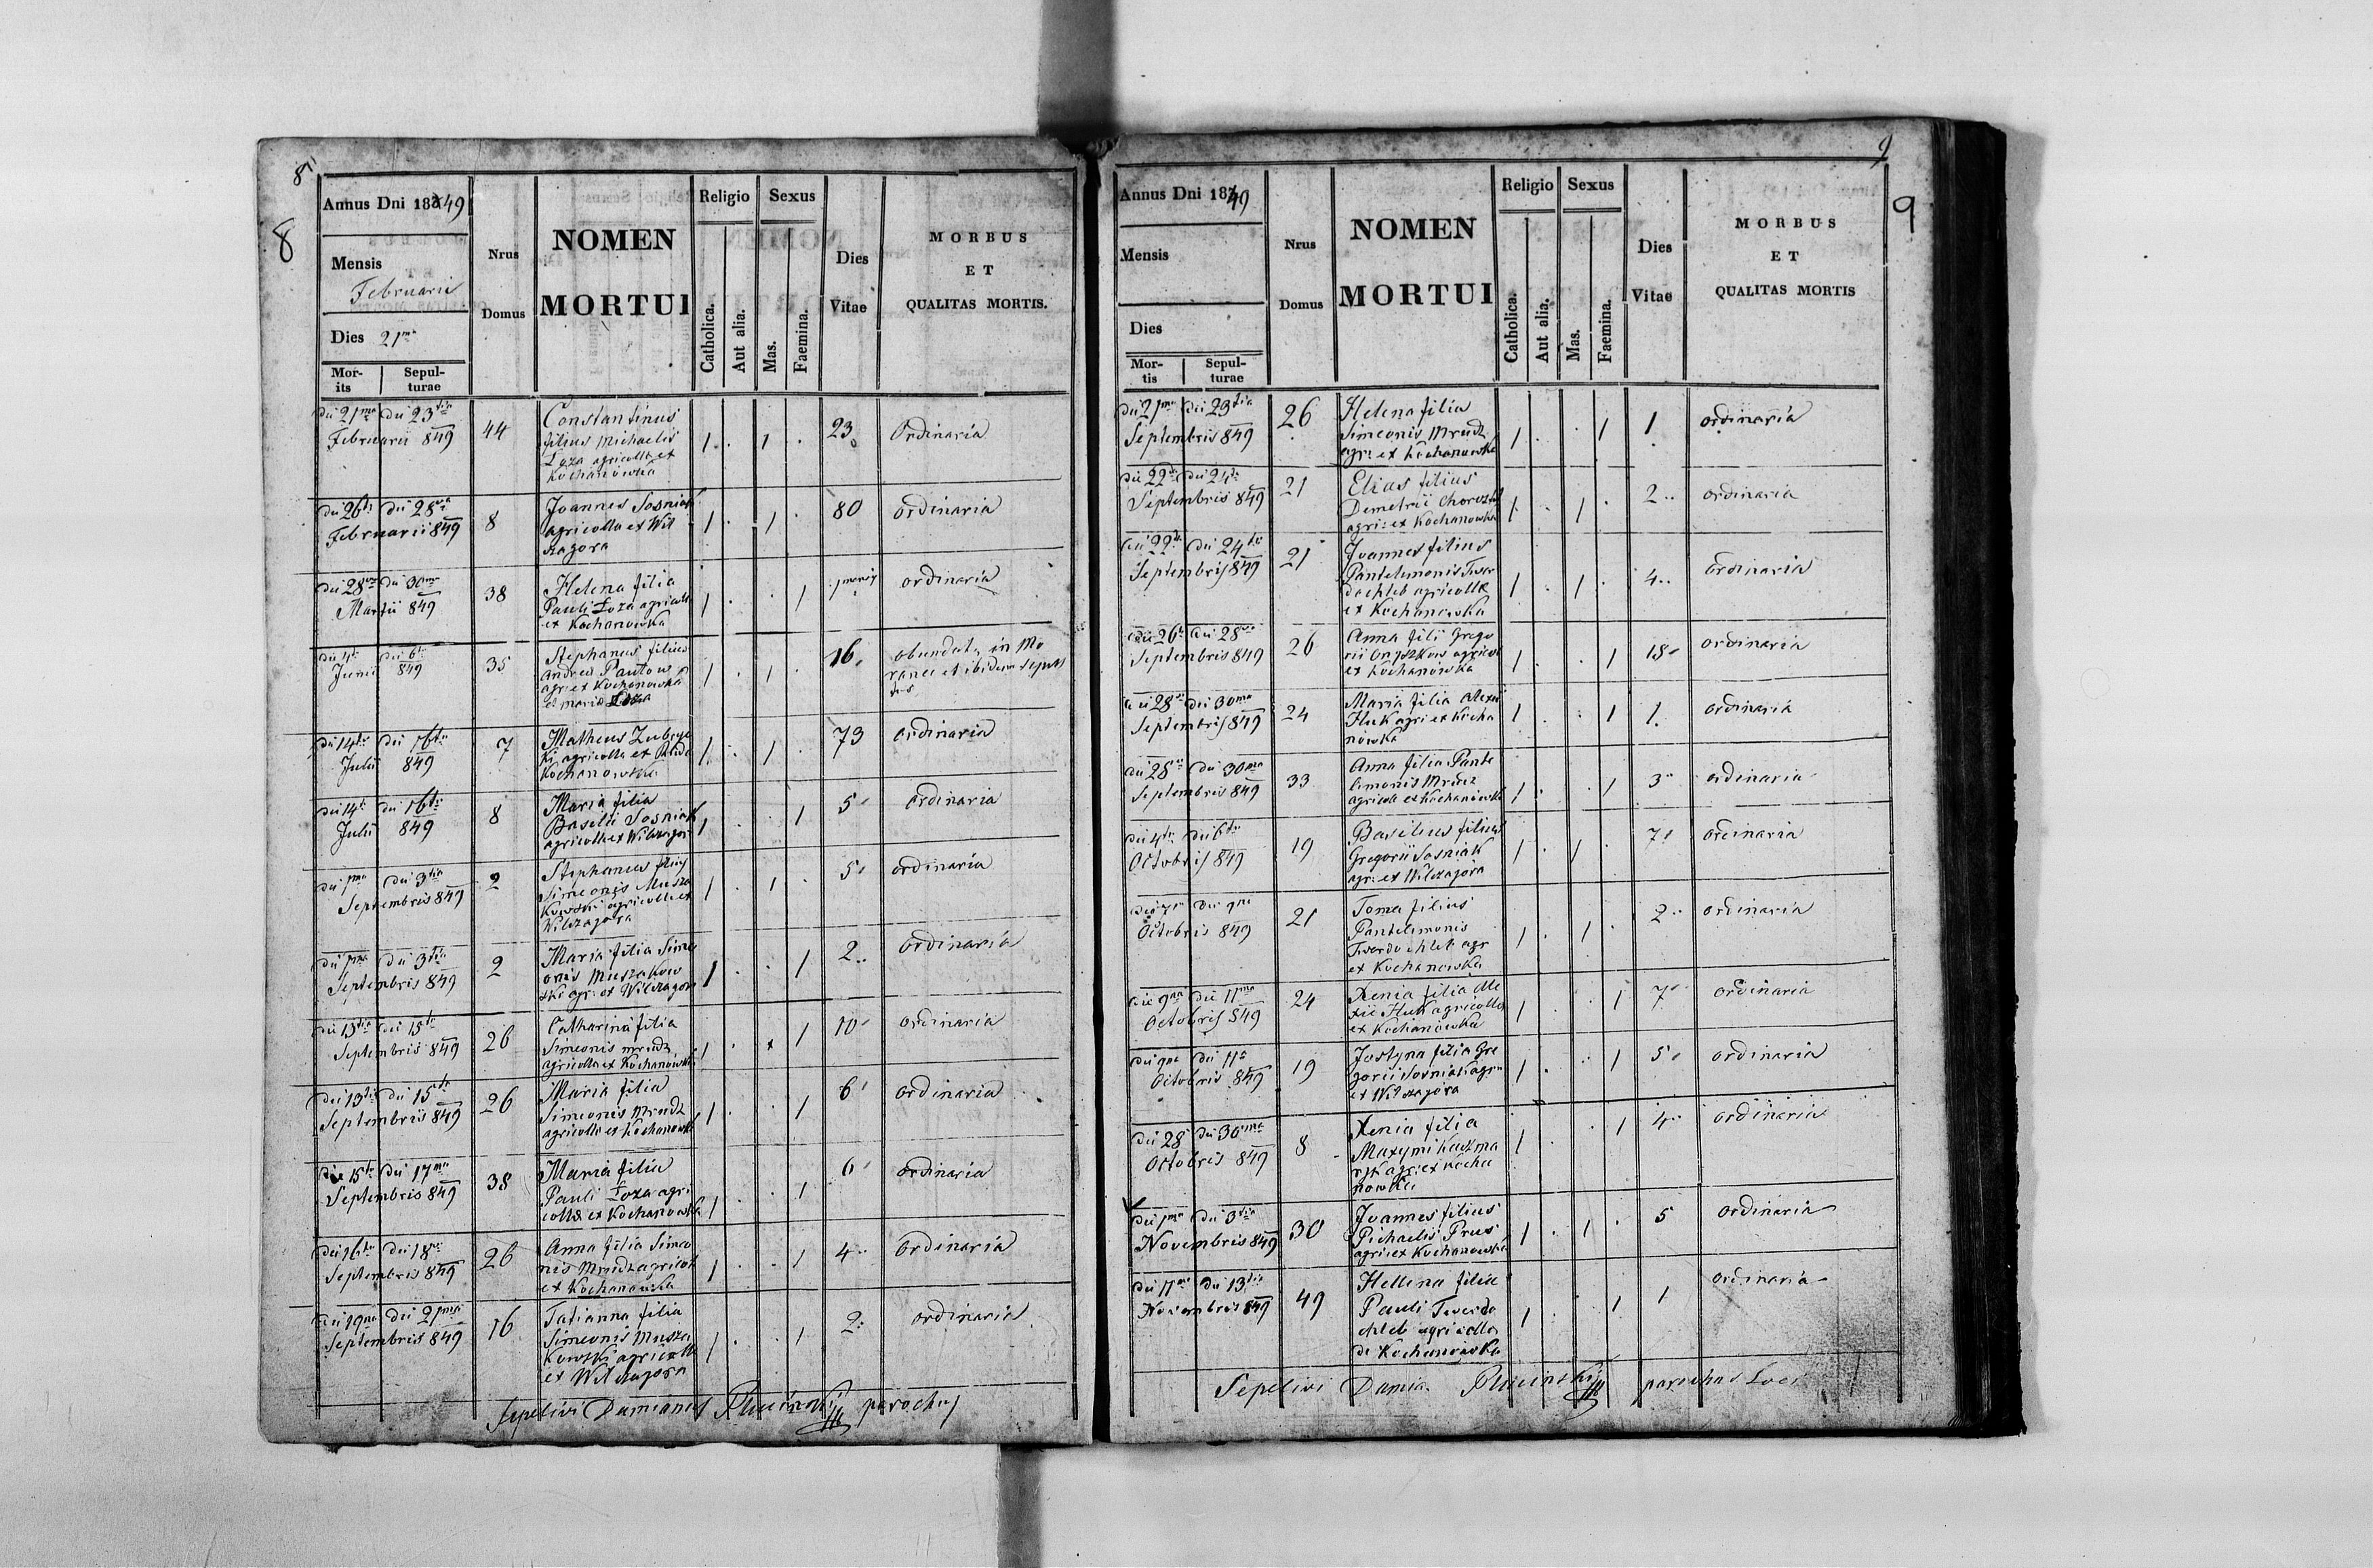 8
8
Annus Dni 1849
Mensis
Februarii
Dies 21ma
Mor-
its
Sepul-
turae
Nrus
Domus
NOMEN
MORTUI
Religio
Catholica.
Aut alia.
Sexus
Mas.
Faemina.
Dies
Vitae
MORBUS
ET
QUALITAS MORTIS.
die 21ma die 23tia
Februarii 849
44
Constantinus
filius Michaelis
Łoza agricolla ex
Kochanowka
1 . 1 .
23
Ordinaria
die 26ta die 28va
Februarii 849
8
Joannes Sosniak
agricolla ex Wil
czagora
1 . 1 .
80
ordinaria
die 28va die 30ma
Martii 849
38
Helena filia
Pauli Łoza agricolla
ex Kochanowka
1 . . 1
ordinaria
die 4ta die 6ta
Junii 849
35
Stephanus filius
Andreae
agr: ex Kochanowka
et Maria Łoza
1 . 1 .
16
in
et ibidem
die 14ta die 16ta
Julii 849
7
Matheus
agricolla ex
Kochanowka
1 . 1
73
ordinaria
die 14ta die 16ta
Julii 849
8
Maria filia
Basilii Sosniak
agricolla ex Wilczagora
1 . . 1
5
ordinaria
die 1ma die 3tia
Septembris 849
2
Stephanus filius
Simeonis Musza
kowski agricolla ex
Wilczagora
1 . 1 .
5
ordinaria
die 1ma die 3tia
Septembris 849
2
Maria filia Sime
onis Muszakow
ski agr: ex Wilczagora
1 . . 1
2
ordinaria
die 13tia die 15ta
Septembris 849
26
Catharina filia
Simeonis Mrudz
agricolla ex Kochanowka
1 . . 1
10
ordinaria
die 13tia die 15ta
Septembris 849
26
Maria filia
Simeonis Mrudz
agricolla ex Kochanowka
1 . . 1
6
ordinaria
die 15ta die 17ma
Septembris 849
38
Maria filia
Pauli Łoza agri
colla ex Kochanowka
1 . . 1
6
ordinaria
die 16ta die 18va
Septembris 849
26
Anna filia Simeo
nis Mrudz agricol
ex Kochanowka
1 . . 1
4
ordinaria
die 19na die 21ma
Septembris 849
16
Tatianna filia
Simeonis Musza
kowski agricolla
ex Wilczagora
1 . . 1
2
ordinaria
Sepelivi Damianus parochus
9
9
Annus Dni 1849
Mensis
Dies
Mor-
tis
Sepul-
turae
Nrus
Domus
NOMEN
MORTUI
Religio
Catholica.
Aut alia.
Sexus
Mas.
Faemina.
Dies
Vitae
MORBUS
ET
QUALITAS MORTIS
die 21ma die 23tia
Septembris 849
26
Helena filia
Simeonis Mrudz
agr: ex Kochanowka
1 . . 1
1
ordinaria
die 22 die 24ta
Septembris 849
21
Elias filius
Demetrii
agri: ex Kochanowka
1 . 1 .
2
ordinaria
die 22 die 24ta
Septembris 849
21
Joannes filius
Pantelimonis Twar
dochleb agricolla
ex Kochanowka
1 . 1 .
4
ordinaria
die 26ta die 28va
Septembris 849
26
Anna fili Grego
rii agricol
ex Kochanowka
1 . . 1
18
ordinaria
die 28va die 30ma
Septembris 849
24
Maria filia Alexii
Huk agri ex Kocha
nowka
1 . . 1
1
ordinaria
die 28va die 30ma
Septembris 849
33
Anna filia Pante
limonis Mrudz
agricola ex Kochanowka
1 . . 1
3
ordinaria
die 4ta die 6ta
Octobris 849
19
Basilius filius
Gregorii Sosniak
agr: ex Wilczagora
1 . 1
7
ordinaria
die 7ma die 9na
Octobris 849
21
Toma filius
Pantelimonis
Twerdochleb agr
ex Kochanowka
1 . 1 .
2
ordinaria
die 9na die 11ma
Octobris 849
24
Xenia filia Ale
xii Huk agricolla
ex Kochanowka
1 . . 1
7
ordinaria
die 9na die 11a
Octobris 849
19
Justyna filia Gre
gorii Sosniak agr:
ex Wilczagora
1 . . 1
5
ordinaria
die 28 die 30ma
Octobris 849
8
Xenia filia
Maxymi Kaczma
ryk agri: ex Kocha
nowka
1 . . 1
4
ordinaria
die 1ma die 3tia
Novembris 849
30
Joannes filius
Michaelis Prus
agri: ex Kochanowka
1 . 1 .
5
ordinaria
die 11ma die 13tia
Novembris 849
49
Hellena filia
Pauli Twerdo
chleb agricolla
de Kochanowka
1 . . 1
1
ordinaria
Sepelivi Damia. parochus Loci